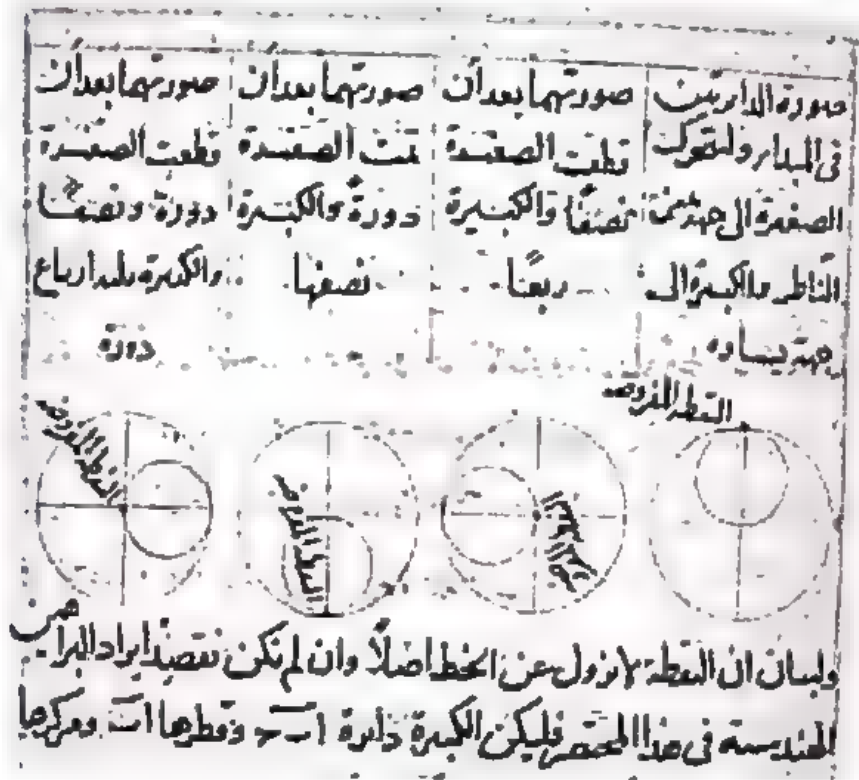 صورة الدائرتين
في المبدا، ولتتحرك
الصغيرة الى جهة يمين
الناظر والكبيرة الى
جهة يساره
صورتهما بعد أن
قطعت الصغيرة
نصفًا والكبيرة
ربعًا
صورتهما بعد أن
تمت الصغيرة
دورةً والكبيرة
نصفها
صورتهما بعد أن
قطعت الصغيرة
دورة ونصفها
والكبيرة ثلثه ارباع
دورة
النقطة المفروضة
النقطة المفروضة
النقطة المفروضة
النقطة المفروضة
ولبيان ان النقطة لا تزول عن الخط اصلاً وان لم نكن نقصد ايراد البراهين
الهندسية في هذا المختصر فليكن الكبيرة دائرة ا ب ج وقطرها ا ب ومركزها